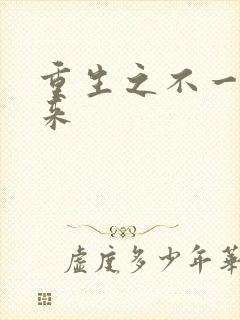 重生之不一
来
虚度多少年華